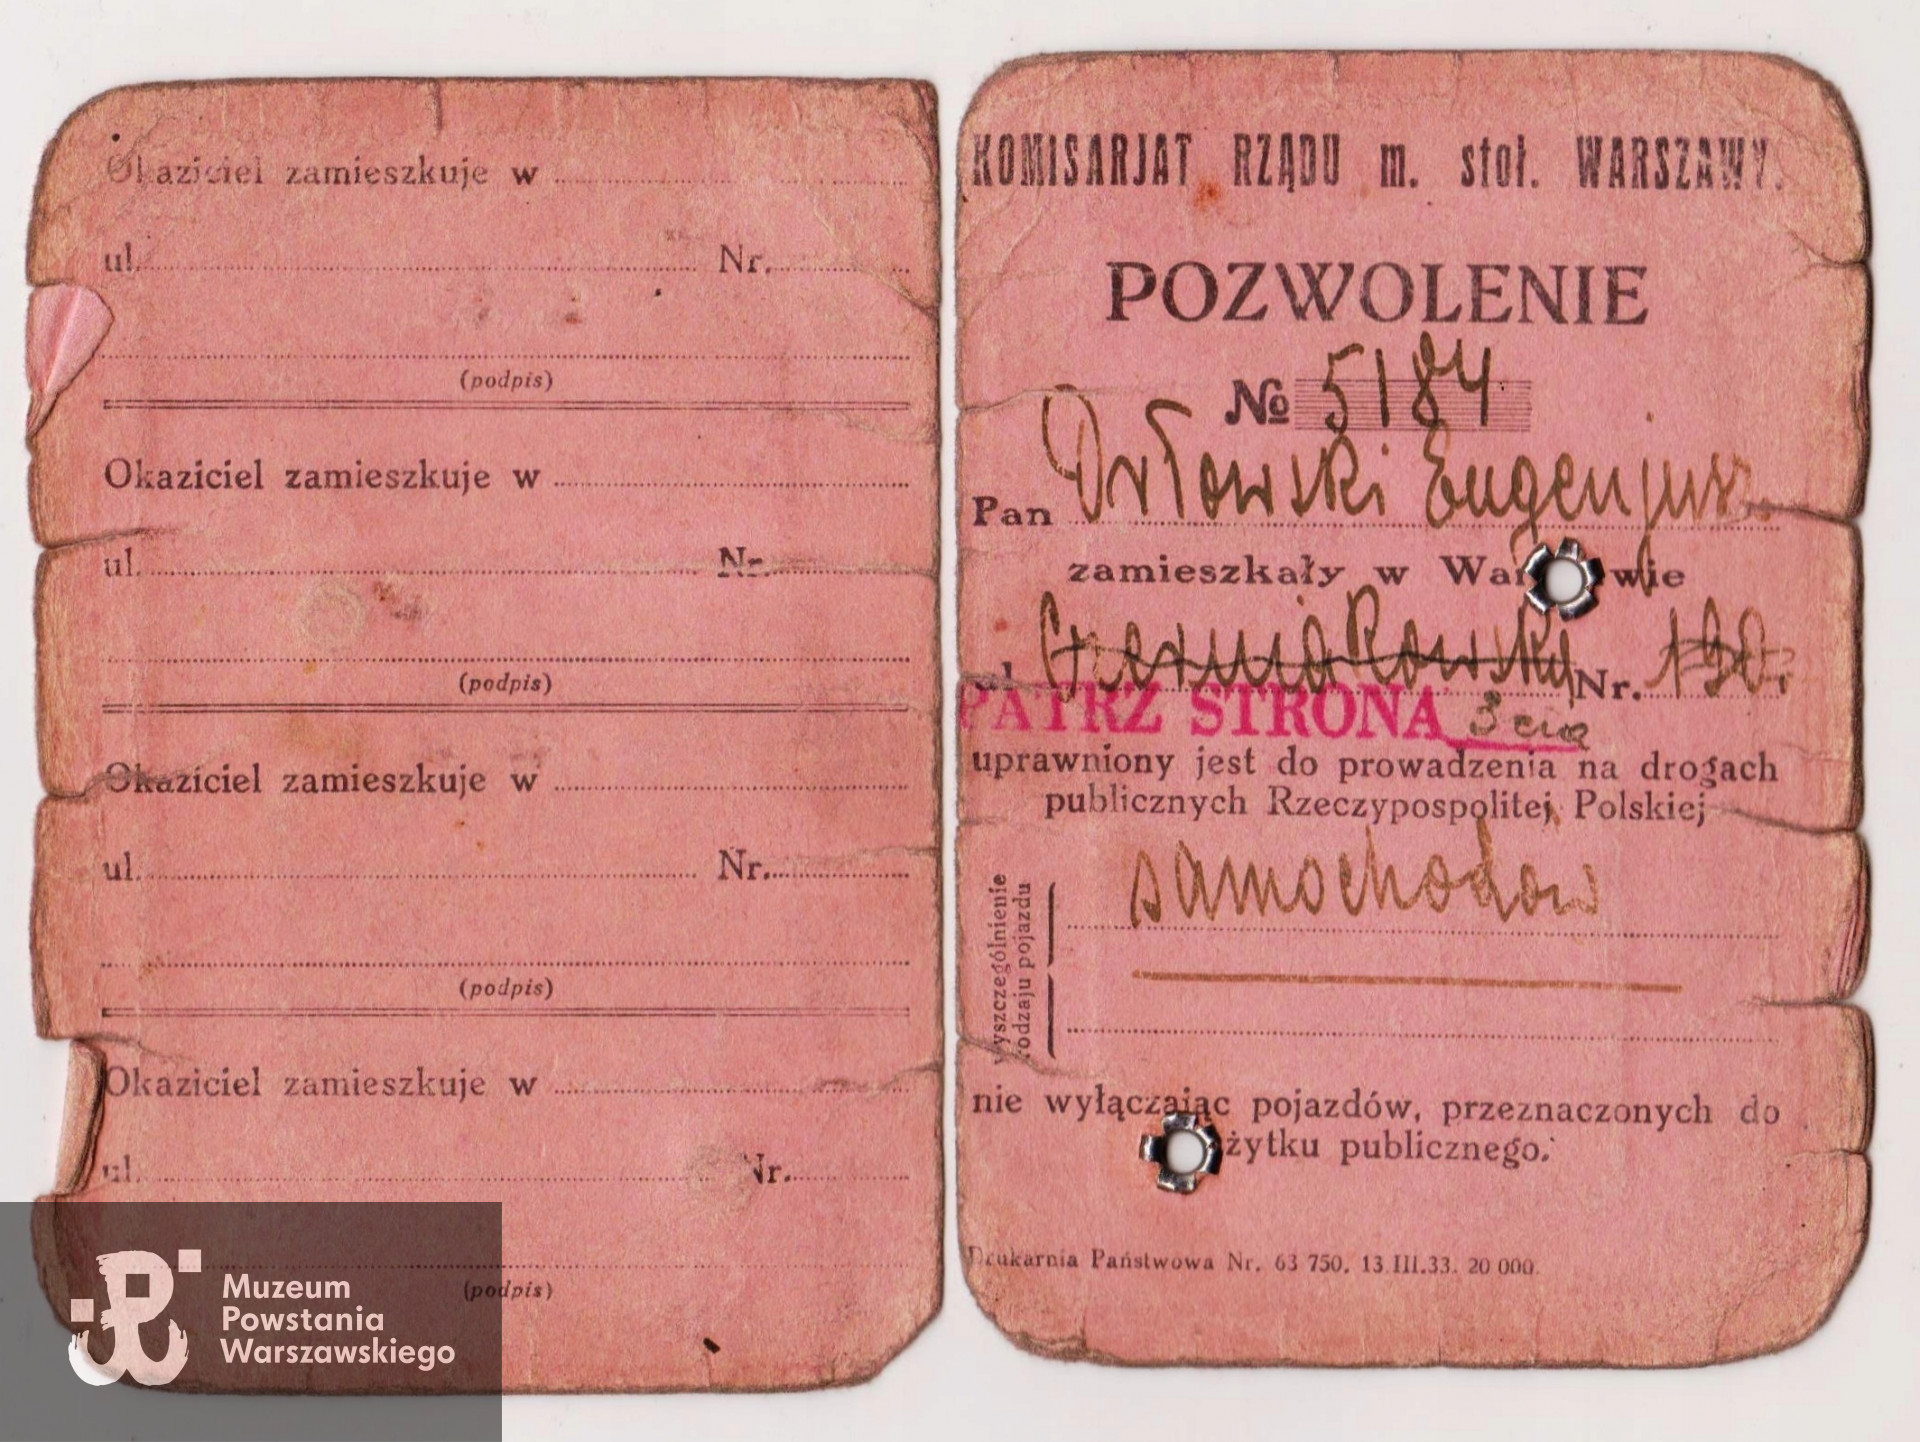 Okaziciel zamieszkuje w
ul. Nr.
(podpis)
Okaziciel zamieszkuje w
ul. Nr.
(podpis)
Okaziciel zamieszkuje w
ul. Nr.
(podpis)
Okaziciel zamieszkuje w
ul. Nr.
(podpis)
Muzeum
Powstania
Warszawskiego
KOMISARJAT RZĄDU m. stoł. WARSZAWY.
POZWOLENIE
№ 5184
Pan Orłowski Eugenjusz
zamieszkały w Wa wie
ul. Czerniakowska Nr. 190.
PATRZ STRONA 3 cia
uprawniony jest do prowadzenia na drogach
publicznych Rzeczypospolitej Polskiej
wyszczególnienie
rodzaju pojazdu
samochodów
nie wyłączając pojazdów, przeznaczonych do
użytku publicznego.
Drukarnia Państwowa Nr. 63 750. 13.III.33. 20 000.